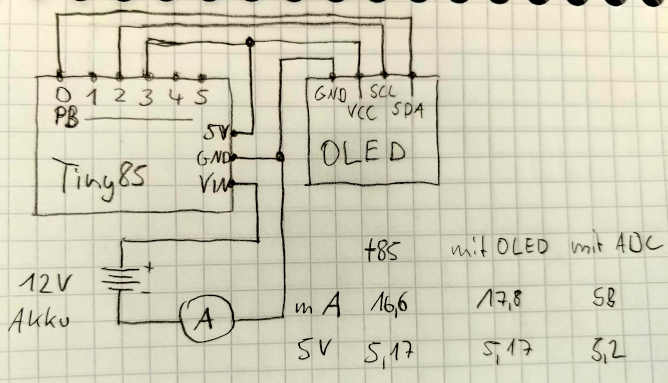 0 1 2 3 4 5
PB
GND VCC SCL SDA
5V
GND
VIN
Tiny85
OLED
12V
Akku
+
-
A
t85 mit OLED mit ADC
mA 16,6 17,8 58
5V 5,17 5,17 5,2